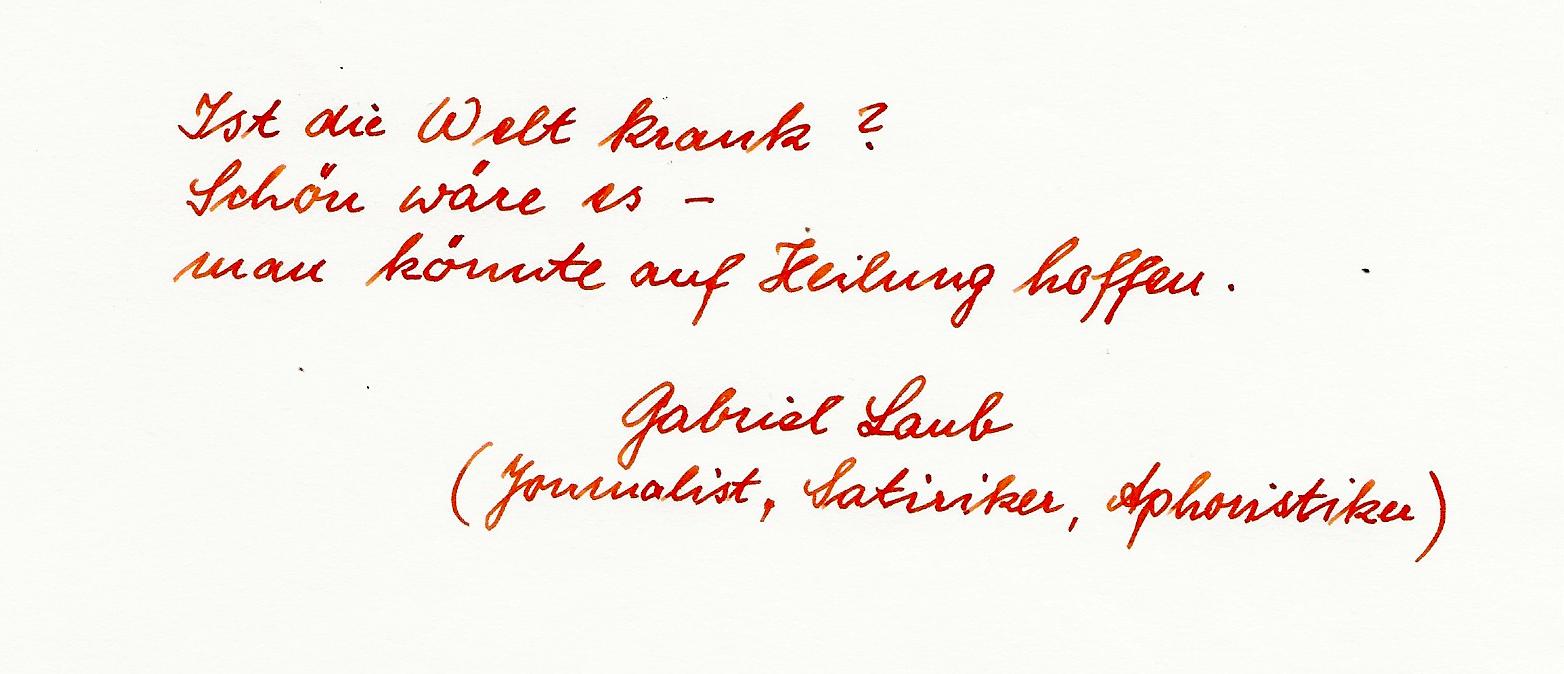 Ist die Welt krank ?
Schön wäre es –
man könnte auf Heilung hoffen.
Gabriel Laub
(Journalist, Satiriker, Aphoristiker)